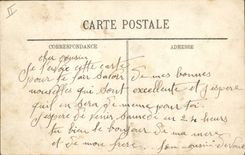 II
CARTE POSTALE
CORRESPONDANCE
ADRESSE
cher cousin
Je t'envoie cette carte
pour te fair savoir de mes bonnes
nouvelles qui sont excellente et j'espere
quil en sera de meme pour toi.
j'espere de venir samedi en 24 heurs
tu bien le bonjour de ma mere
et de mon frere. ton cousin